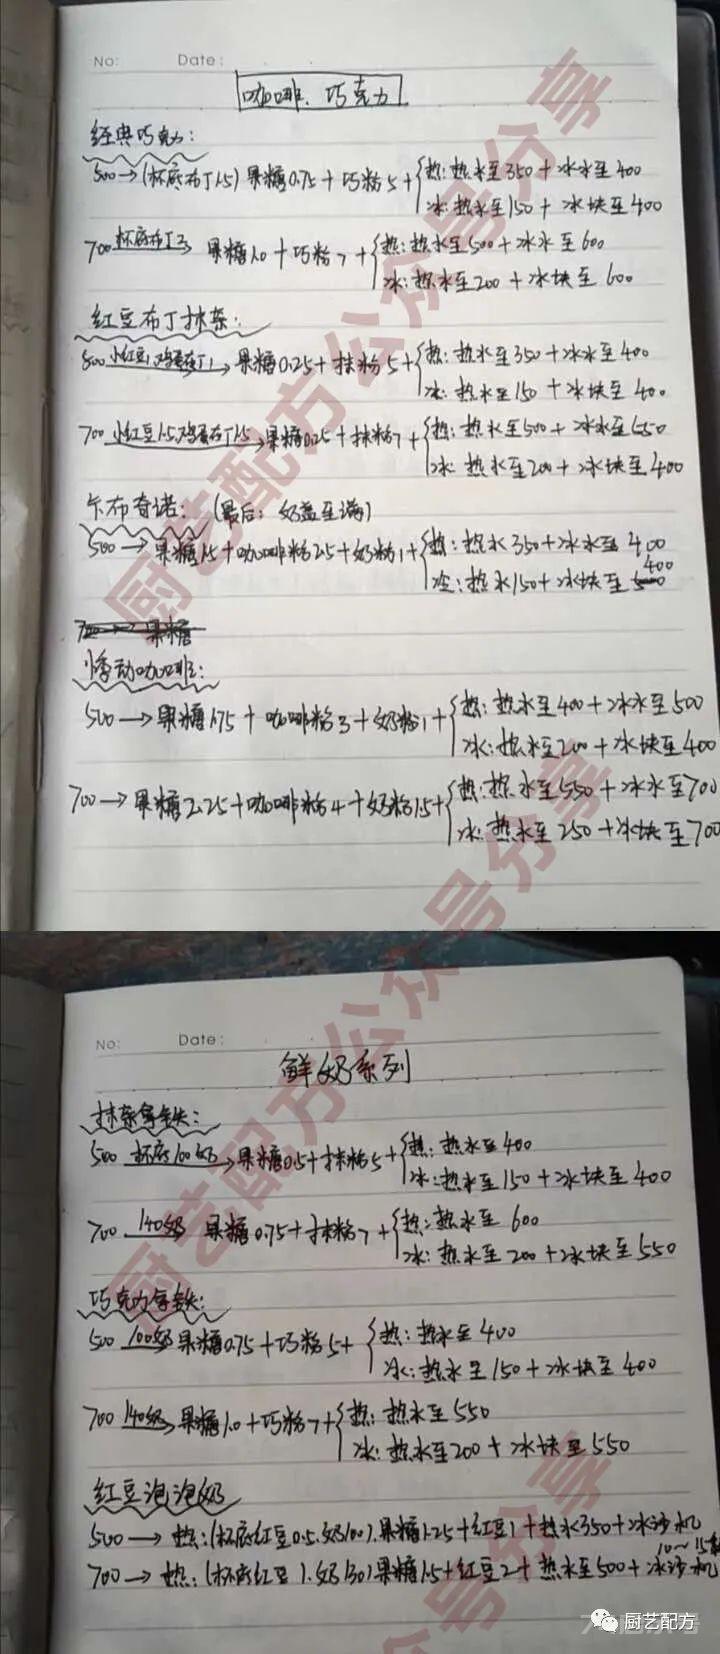 No: Date:
咖啡、巧克力
经典巧克力:
500→(杯底布丁1.5)果糖0.75+巧粉5+{热:热水至350+冰水至400
冰:热水至150+冰块至400
700 杯底布丁3 果糖1.0+巧粉7+{热:热水至500+冰水至600
冰:热水至200+冰块至600
红豆布丁抹茶:
500 小红豆1,鸡蛋布丁1→果糖0.25+抹粉5+{热:热水至350+冰水至400
冰:热水至150+冰块至400
700 小红豆1.5,鸡蛋布丁1.5→果糖0.25+抹粉7+{热:热水至500+冰水至550
冰:热水至200+冰块至400
卡布奇诺:(最后:奶盖至满)
500→果糖1.5+咖啡粉2.5+奶粉1+{热:热水350+冰水至400
冷:热水150+冰块至400
果糖
悸动咖啡:
500→果糖1.75+咖啡粉3+奶粉1+{热:热水至400+冰水至500
冰:热水至200+冰块至400
700→果糖2.25+咖啡粉4+奶粉1.5+{热:热水至550+冰水至700
冰:热水至250+冰块至700
No: Date:
鲜奶系列
抹茶拿铁:
500 杯底100奶→果糖0.5+抹粉5+{热:热水至400
冰:热水至150+冰块至400
700 140奶 果糖0.75+抹粉7+{热:热水至600
冰:热水至200+冰块至550
巧克力拿铁:
500 100奶 果糖0.75+巧粉5+{热:热水至400
冰:热水至150+冰块至400
700 140奶→果糖1.0+巧粉7+{热:热水至550
冰:热水至200+冰块至550
红豆泡泡奶
500→热:(杯底红豆0.5.奶100).果糖1.25+红豆1+热水350+冰沙机
10~15
700→热:(杯底红豆1.奶130)果糖1.5+红豆2+热水至500+冰沙机
厨艺配方公众号分享
厨艺配方公众号分享
厨艺配方